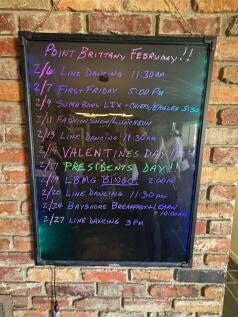 POINT BRITTANY FEBRUARY!!
2/6 LINE DANCING 11:30AM
2/7 FIRST FRIDAY 5:00 PM
2/9 SUPERBOWL LIX - CHIEFS/EAGLES 5:30
2/11 FASHION SHOW/LUNCHEON
2/13 LINE DANCING 11:30AM
2/14 VALENTINES DAY!!
2/17 PRESIDENTS DAY!!
2/19 LBMG BINGO! 2:00PM
2/20 LINE DANCING 11:30AM
2/24 BAYSHORE BREAKFAST+LEARN
10:00AM
2/27 LINE DANCING 3PM